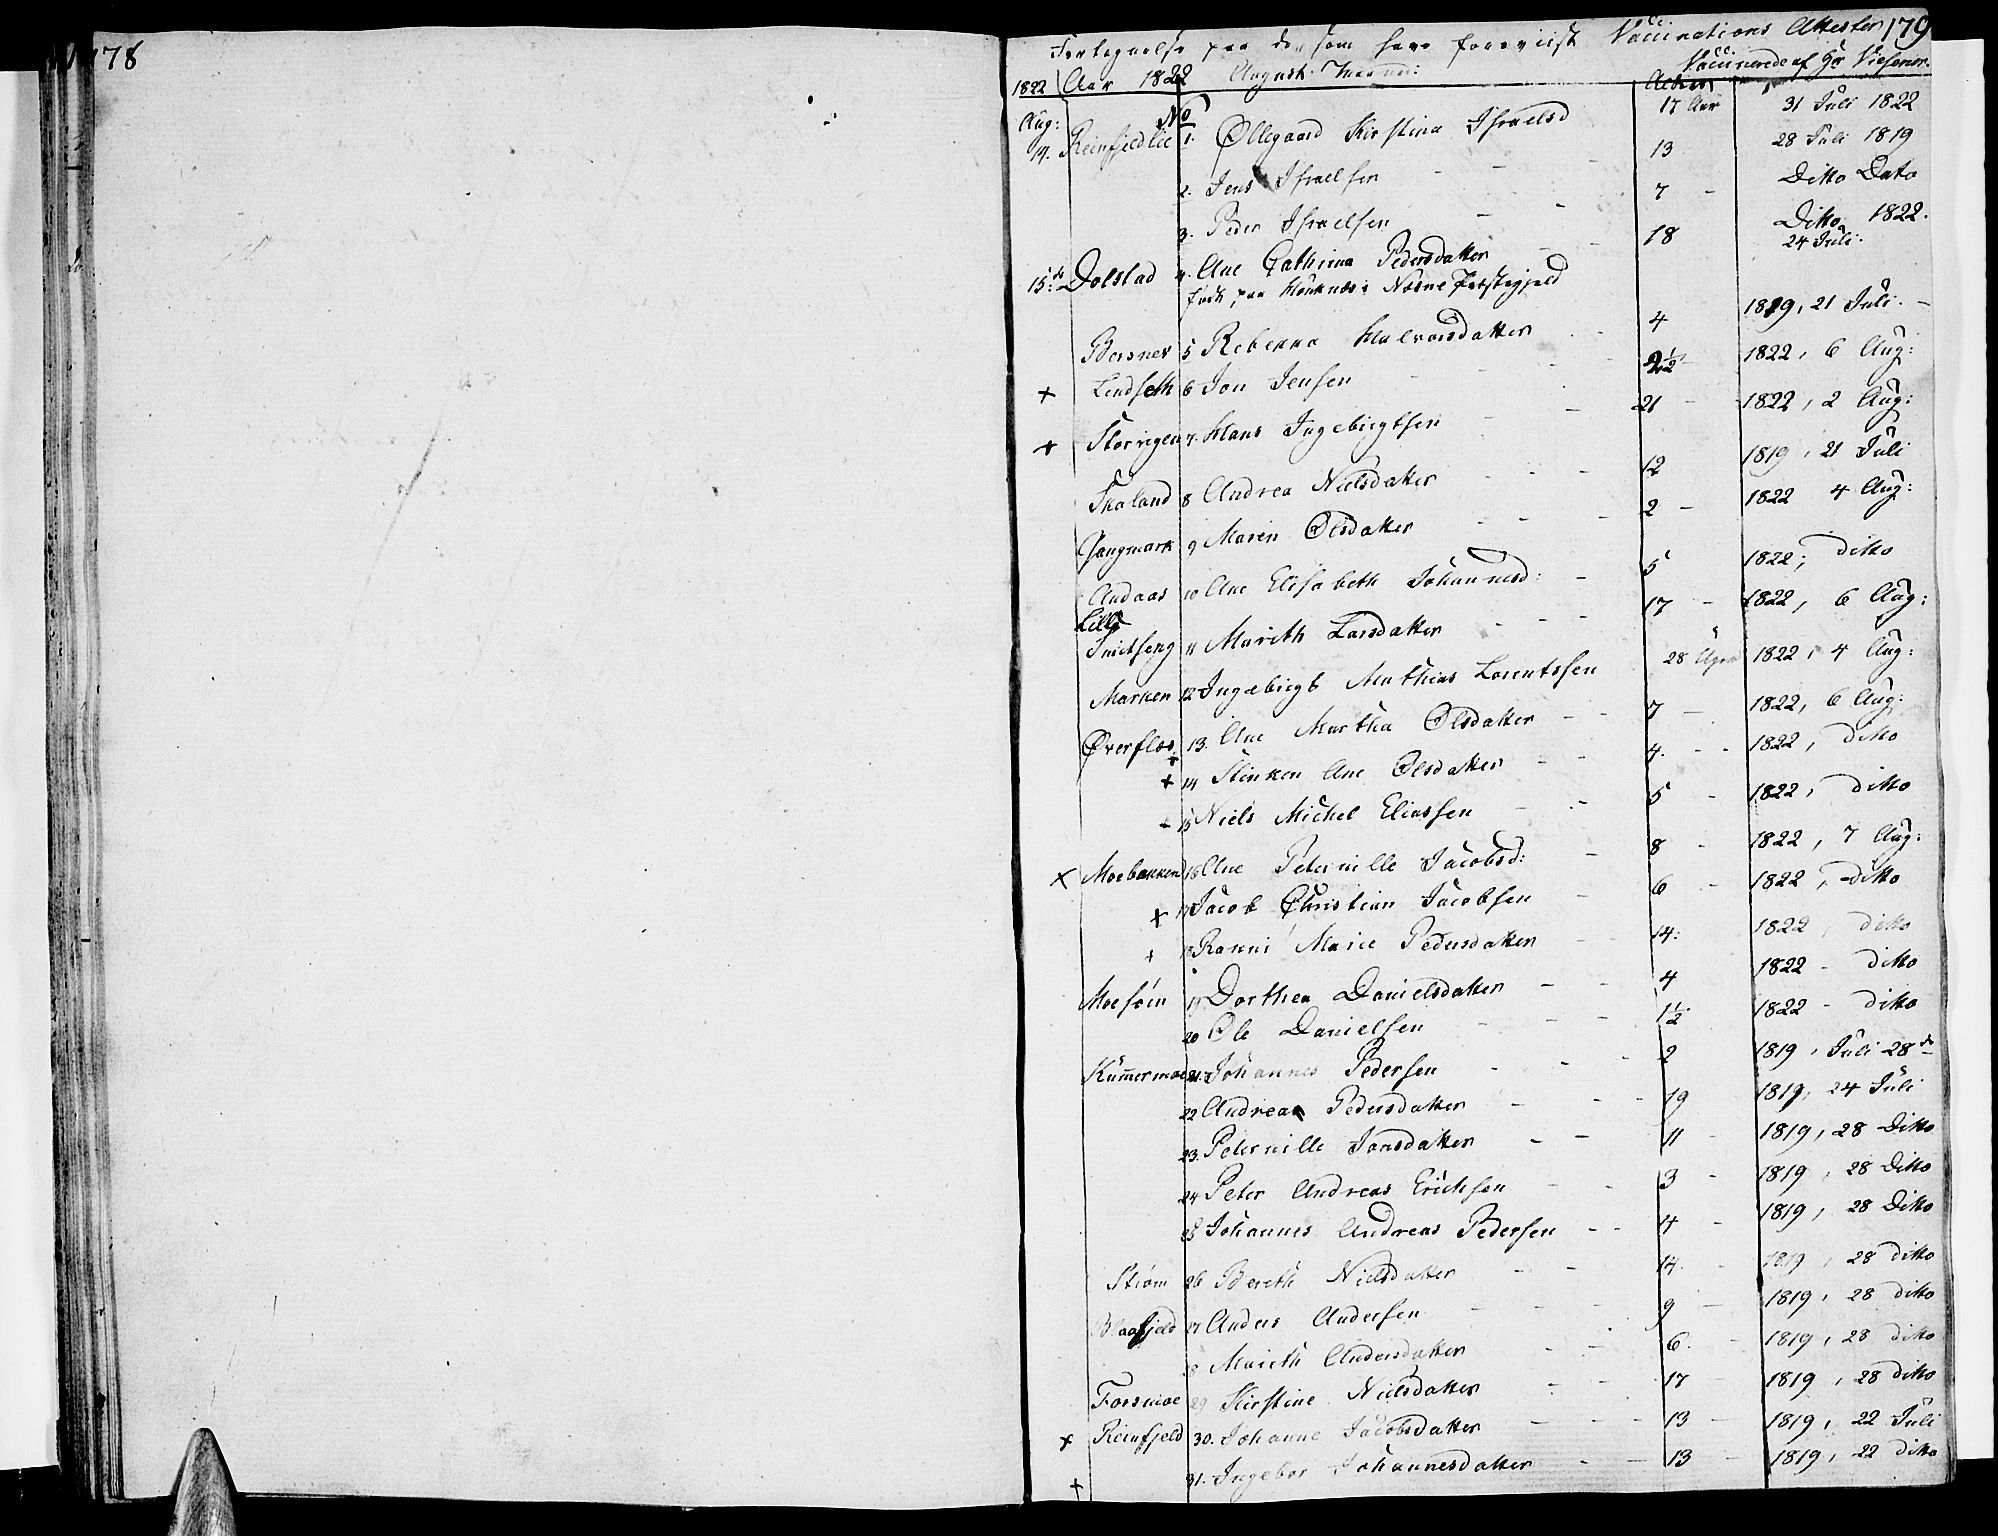 178
Fortegnelse paa de som have foreviist Vaccinations Attester 179
1822 Aar 1822 August Maaned: Alder Vaccinerede af Hr
Aug: No
14. Reinfjedlie 1. Øllegaard Kirstina Israelsd 17 Aar 31 Juli 1822
2. Jens Israelsen - - 13 28 Juli 1819
3. Peder Israelsen - - 7 - Ditto Dato
15de Dolstad 4. Ane Cathrina Pedersdatter - - 18 Ditto 1822.
24 Juli.
født paa i Næsne Præstegjeld
5 Rebekka Halvorsdatter - - 4 1819, 21 Juli -
+ Lindseth 6 Jon Jensen - - 2½ 1822, 6 Aug:
+ 7. Hans Ingebrigtsen - - 21 - 1822, 2 Aug:
8 Andrea Nielsdatter - - - 12 1819, 21 Juli
9 Maren Olsdatter - - - 2 - 1822 4 Aug:
Andaas 10 Ane Elisabeth Johannesd: - 5 1822; ditto
Lille
11 Marith Larsdatter - - - 17 - 1822, 6 Aug:
Marken 12 Ingebrigt Mathias Lorentssen 28 Uger 1822, 4 Aug:
13. Ane Martha Olsdatter - - 7 - 1822, 6 Aug:
+ 14 Ane Olsdatter - - 4. - - 1822, ditto
- 15 Niels Michel Eliassen - - 5 - 1822, ditto
+ Moebakken 16 Ane Peternille Jacobsd: - 8 - 1822, 7 Aug:
+ 17 Jacob Christian Jacobsen - 6 - 1822, ditto
+ 18 Marie Pedersdatter - - 14: 1822, ditto
19 Dorthea Danielsdatter - - 4 1822 - ditto
20 Ole Danielsen - - - 1½ 1822 - ditto
21. Johannes Pedersen - - - 2 1819, Juli 28de
22 Andrea Pedersdatter - - - 19 1819, 24 Juli
23. Peternille Jonsdatter - - 11 - 1819, 28 Ditto
24 Peter Andreas Erichsen - - 3 - 1819, 28 Ditto
25 Johannes Andreas Pedersen - - 4 - 1819, 28 Ditto
Strøm 26 Bereth Nielsdatter - - 14. 1819, 28 ditto
27 Anders Andersen - - - 9 - 1819, 28 ditto
8 Marith Andersdatter - - 6. - 1819, 28 ditto
Forsmoe 29 Kirstine Nielsdatter - - 17 1819, 28 ditto
+ Reinfjeld 30. Johanne Jacobsdatter - - - 13 - 1819, 22 Juli
+ 31. Ingebor Johannesdatter - - 13 - 1819, 22 ditto